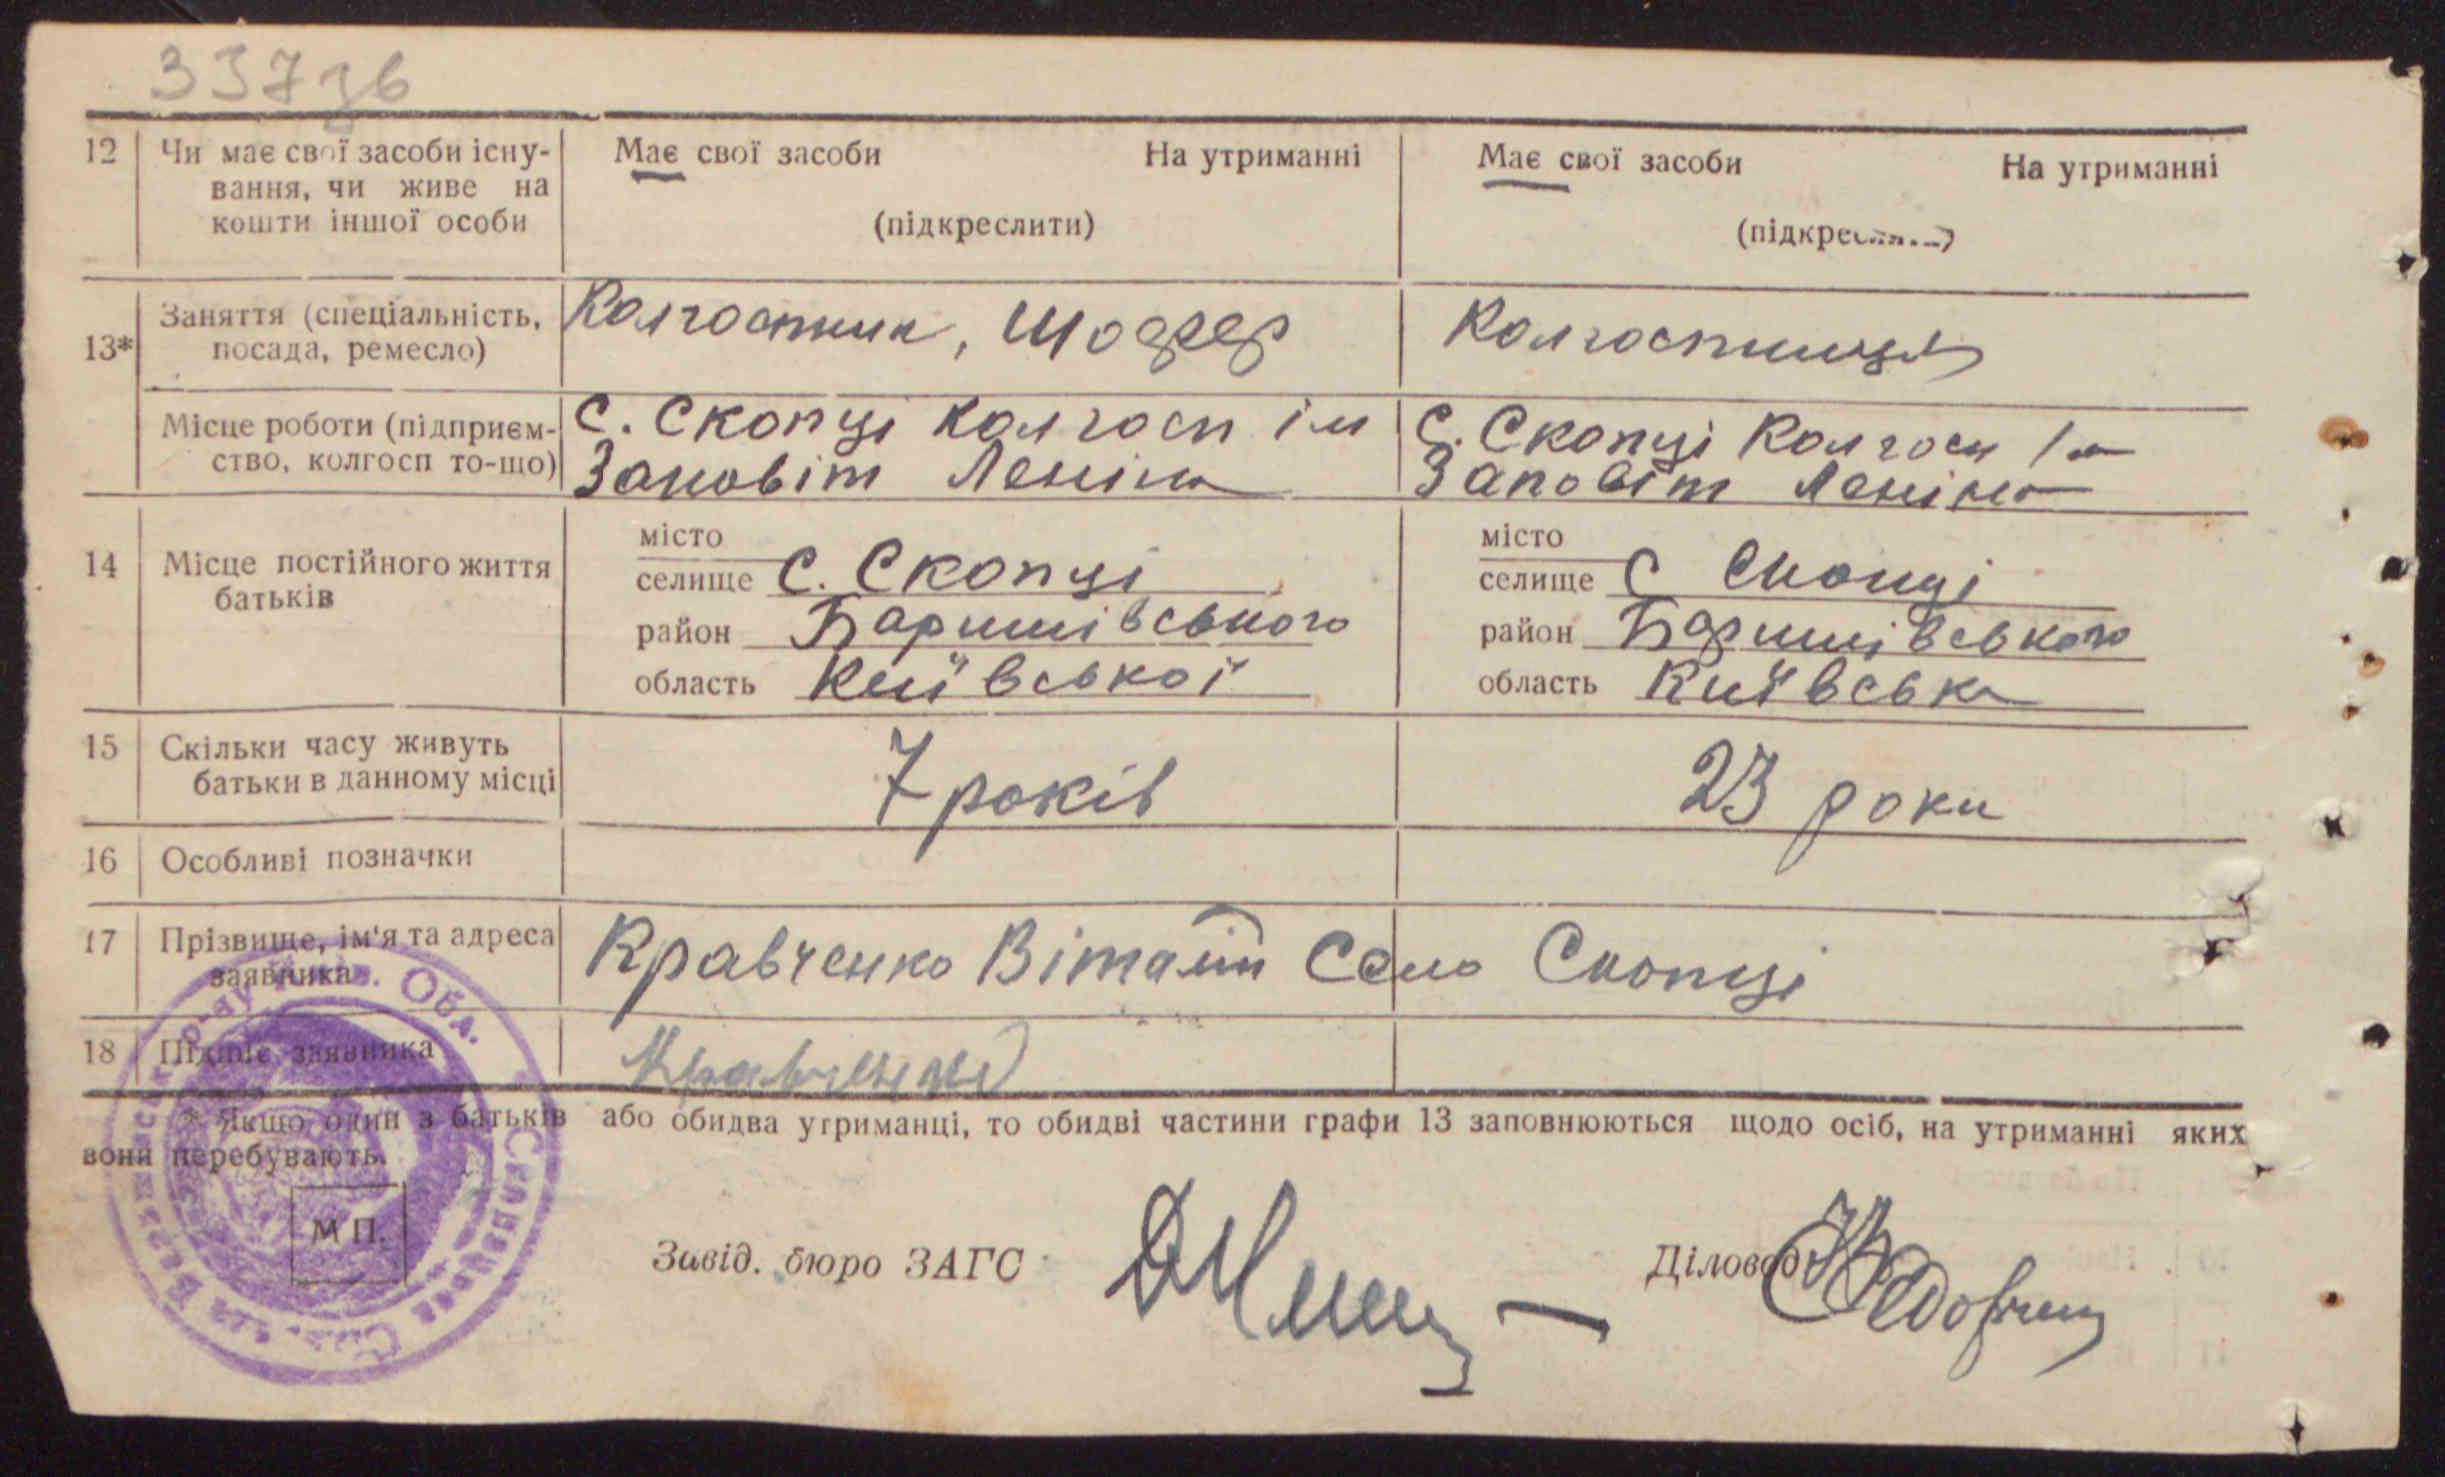 337зв
12 Чи має свої засоби існу- Має свої засоби На утриманні Має свої засоби На утриманні
вання, чи живе на
кошти іншої особи (підкреслити) (підкреслити)
13* Заняття (спеціальність, Колгоспник, Шофер Колгоспниця
посада, ремесло)
Місце роботи (підприєм- С. Скопці колгосп ім С. Скопці Колгосп Ім
ство, колгосп то-що) Заповіт Леніна Заповіт Леніна
місто місто
14 Місце постійного життя селище С. Скопці селище С Скопці
батьків район Баришівського район Баришівського
область Київської область Київська
15 Скільки часу живуть 7 років 23 роки
батьки в данному місці
16 Особливі позначки
17 Прізвище, ім'я та адреса Кравченко Віталій Село Скопці
заявника
18 Підпис заявника Кравченко
* Якщо один з батьків або обидва утриманці, то обидві частини графи 13 заповнюються щодо осіб, на утриманні яких
вони перебувають.
М П.
Завід. бюро ЗАГС Діловод